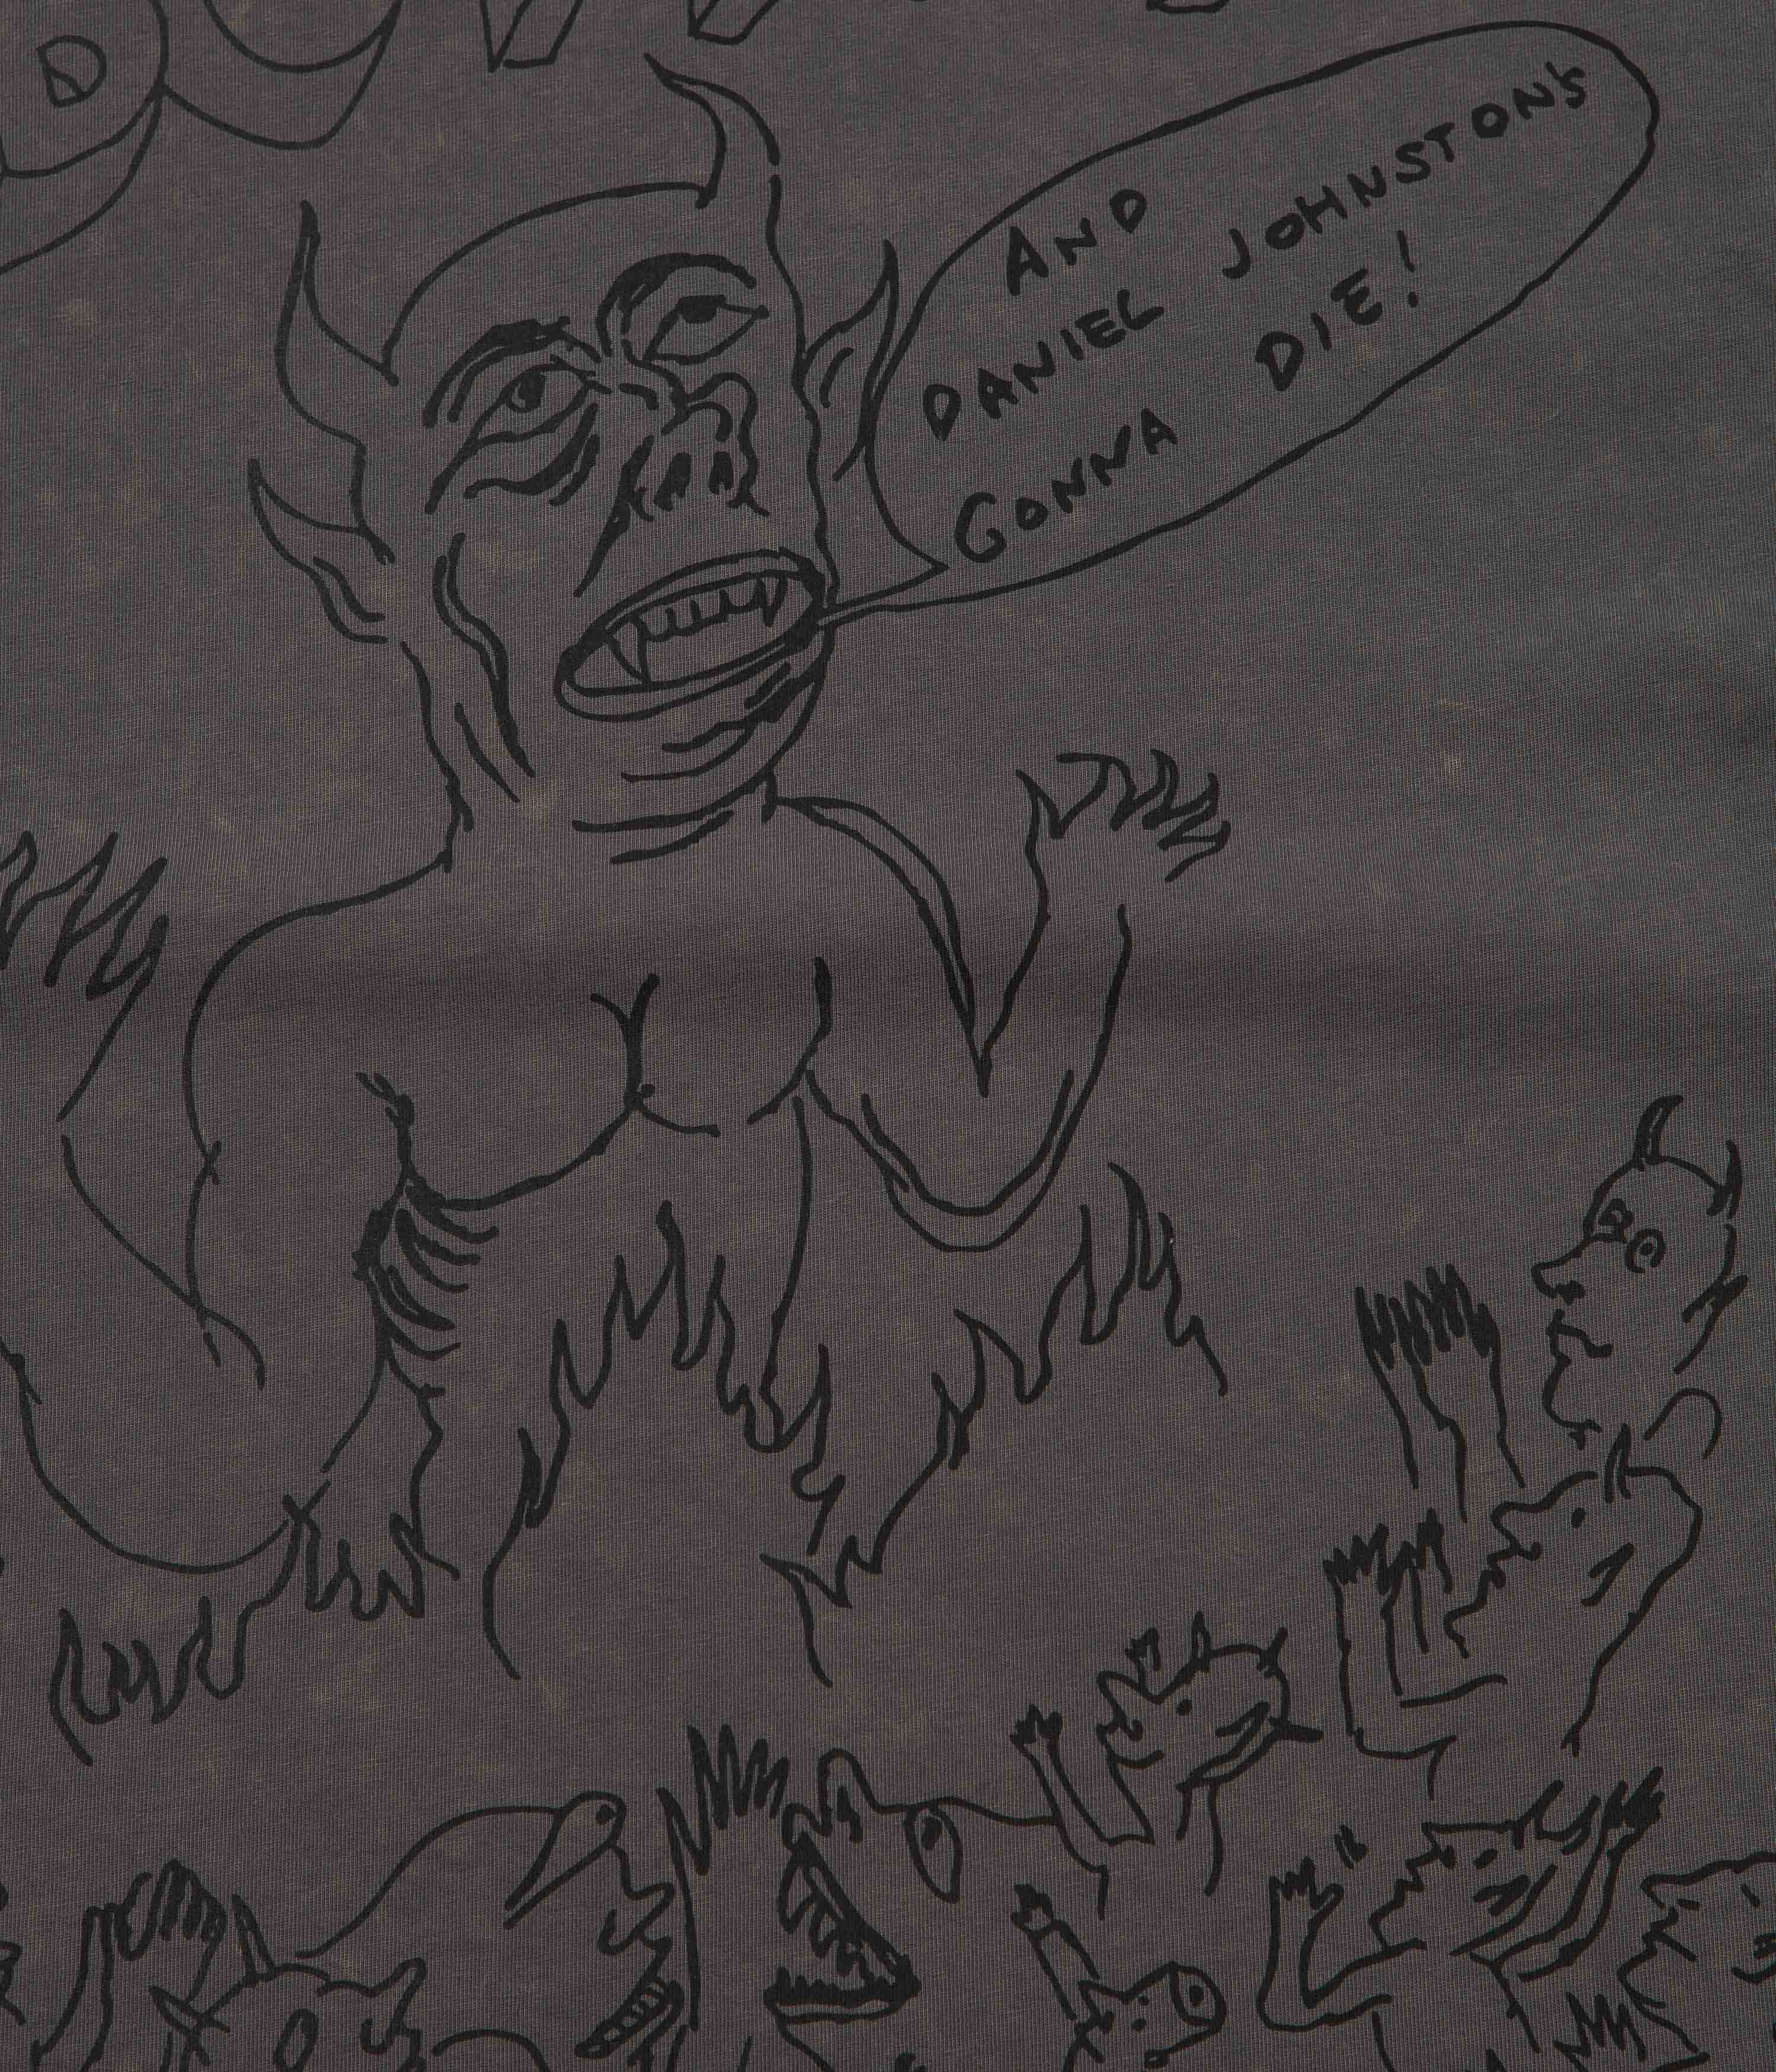 AND
DANIEL JOHNSTON'S
GONNA DIE!